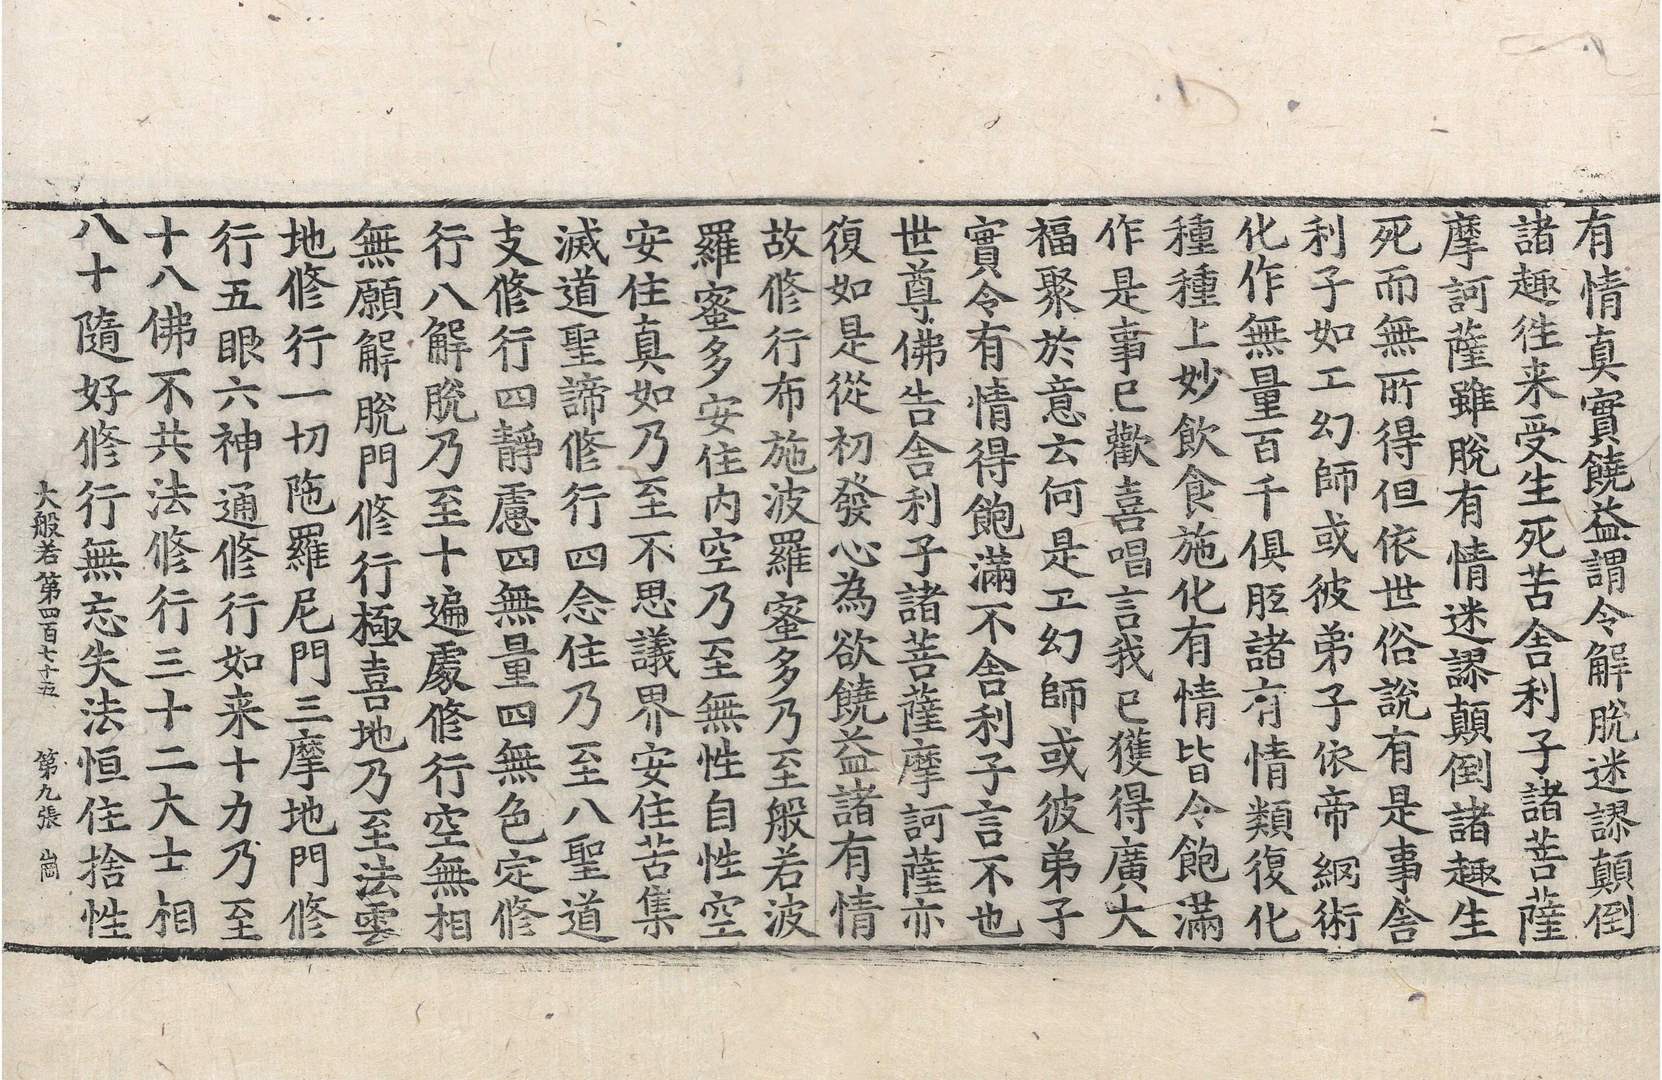 有情真實饒益謂令解脫迷謬顛倒
諸趣往来受生死苦舍利子諸菩薩
摩訶薩雖脫有情迷謬顛倒諸趣生
死而無所得但依世俗說有是事舍
利子如工幻師或彼弟子依帝網術
化作無量百千俱胝諸有情類復化
種種上妙飲食施化有情皆令飽滿
作是事已歡喜唱言我已獲得廣大
福聚於意云何是工幻師或彼弟子
實令有情得飽滿不舍利子言不也
世尊佛告舍利子諸菩薩摩訶薩亦
復如是從初發心為欲饒益諸有情
故修行布施波羅蜜多乃至般若波
羅蜜多安住内空乃至無性自性空
安住真如乃至不思議界安住苦集
滅道聖諦修行四念住乃至八聖道
支修行四靜慮四無量四無色定修
行八解脫乃至十遍處修行空無相
無願解脫門修行極喜地乃至法雲
地修行一切陁羅尼門三摩地門修
行五眼六神通修行如来十力乃至
十八佛不共法修行三十二大士相
八十隨好修行無忘失法恒住捨性
大般若第四百七十五 第九張 崗